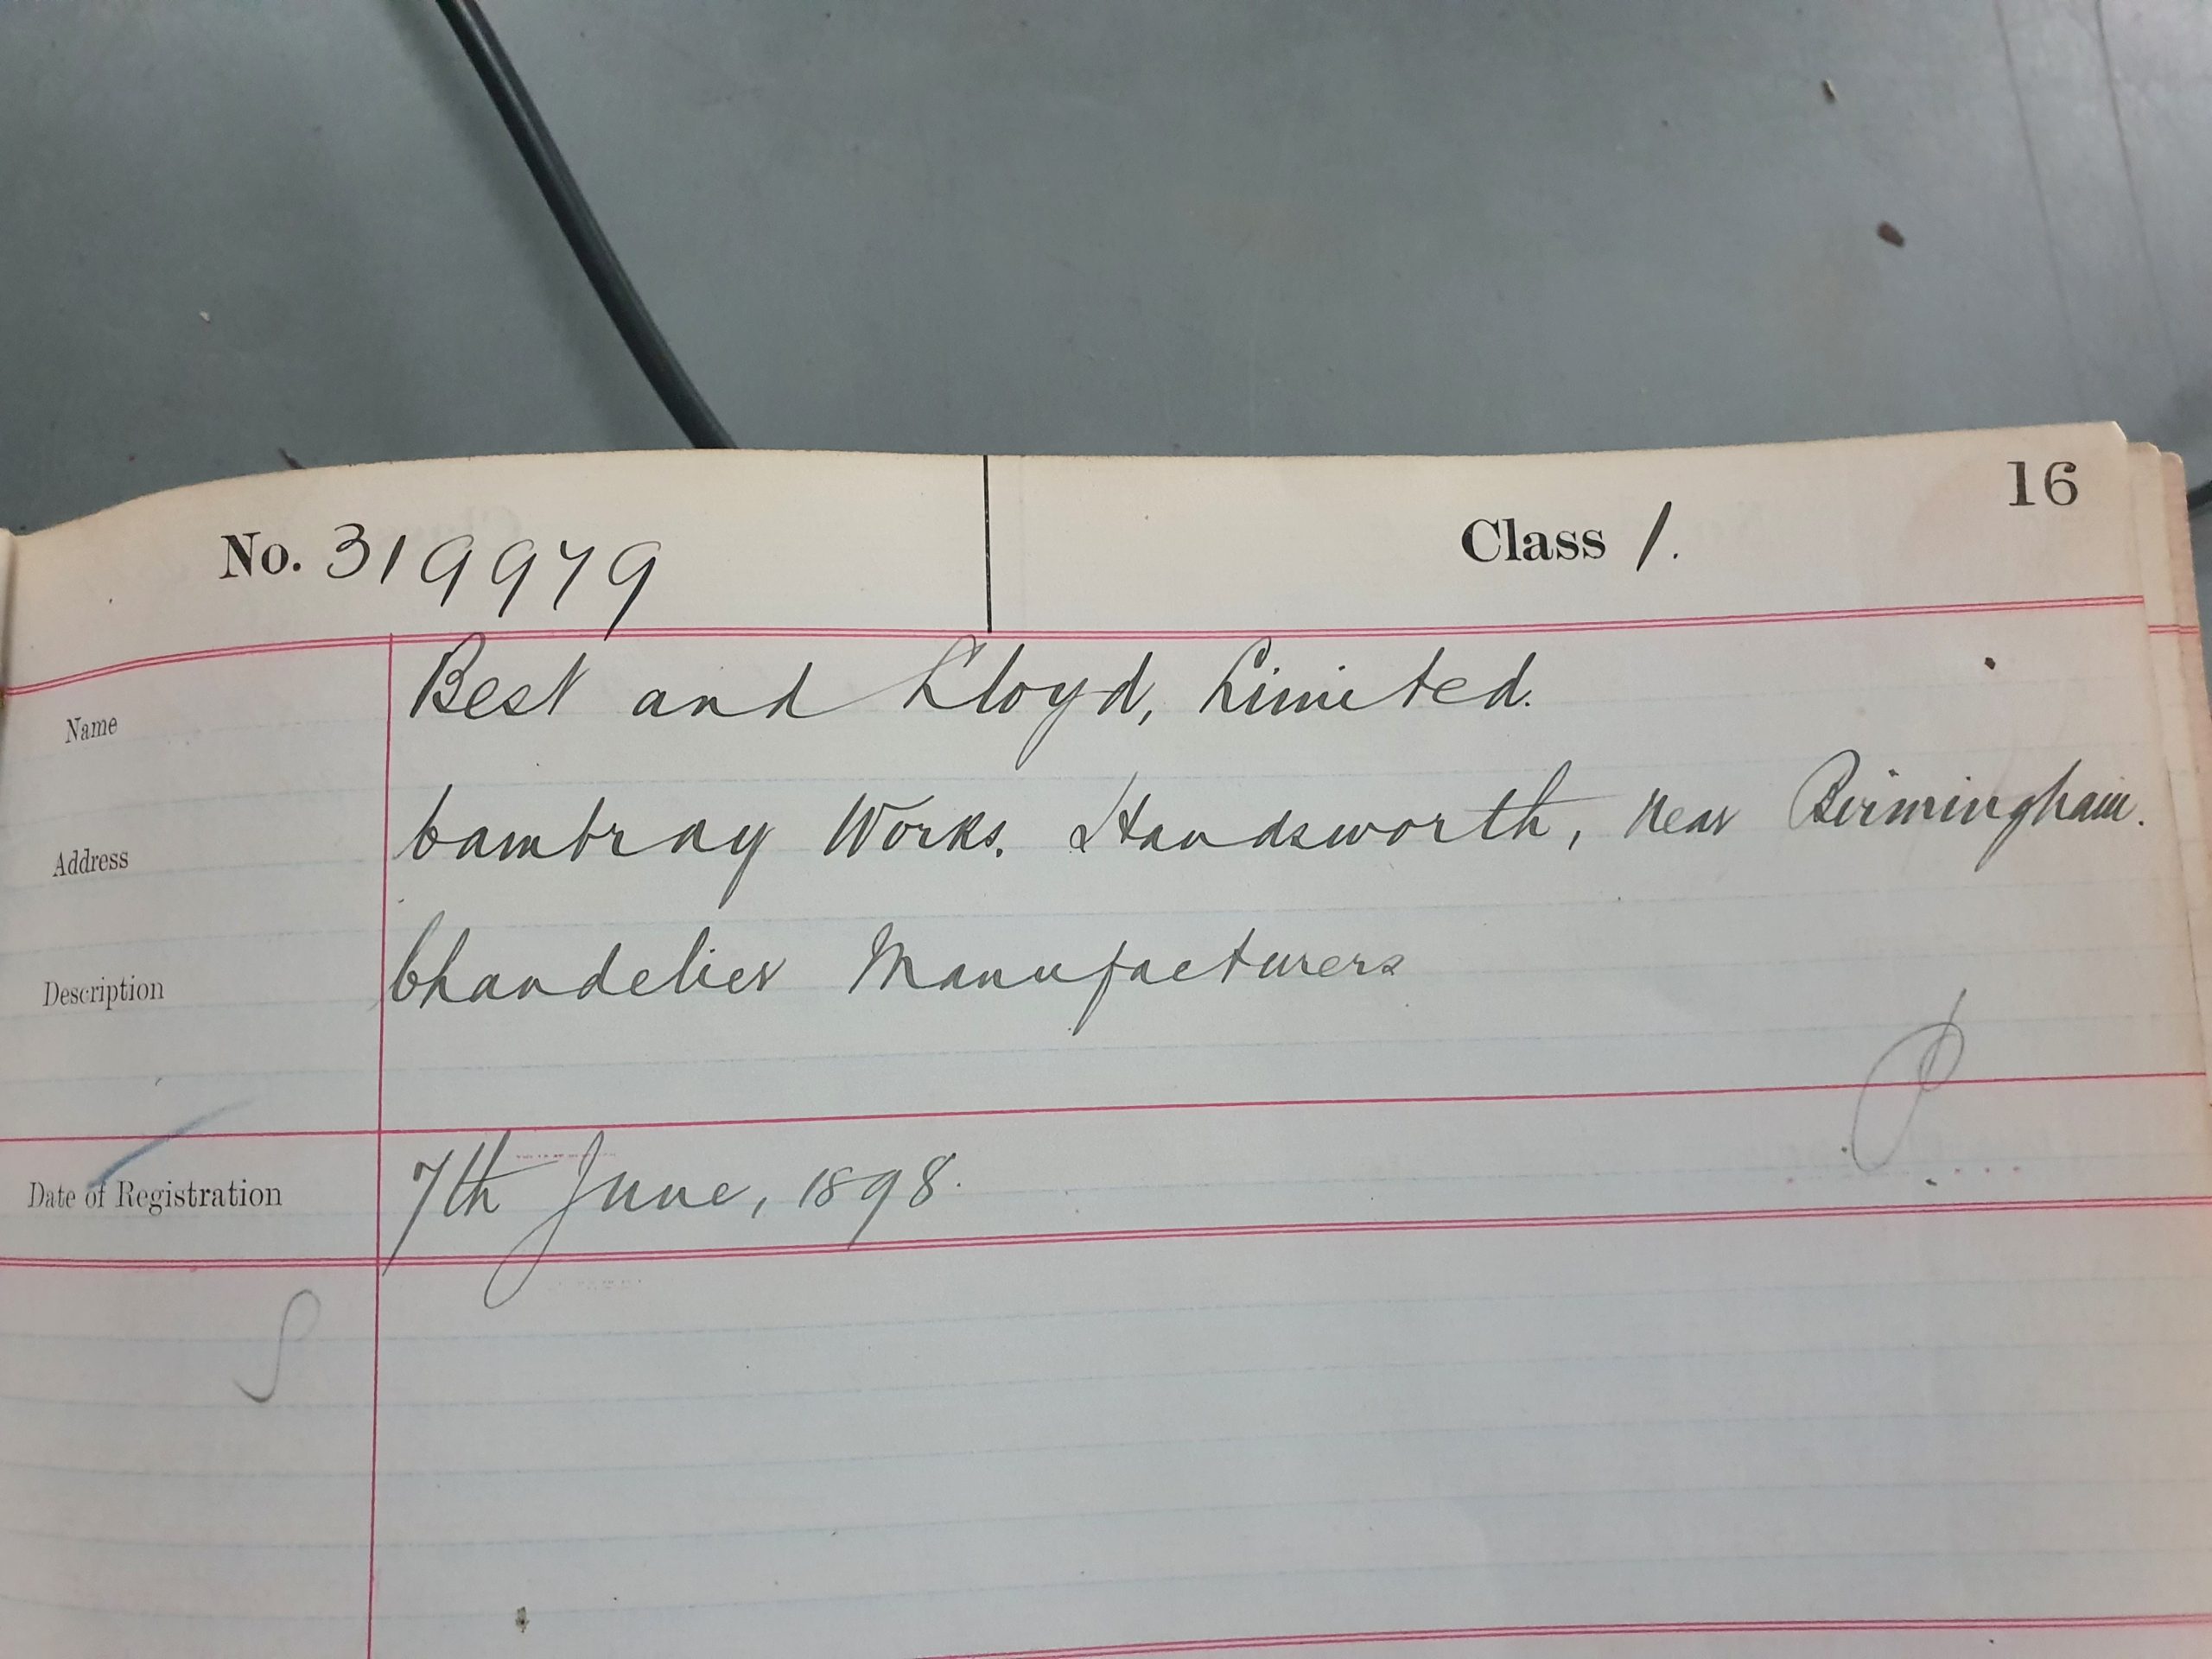 16
No. 319979 Class 1.
Name Best and Lloyd, Limited.
Address Cambray Works. Handsworth, near Birmingham.
Description Chandelier Manufacturers
Date of Registration 7th June, 1898.